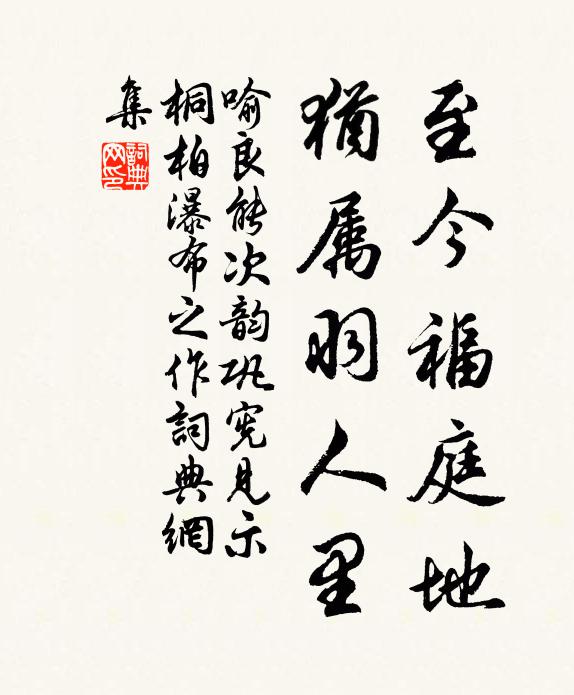 至今福庭地
犹属羽人里
喻良能次韵巩宪见示
桐柏瀑布之作詞典網
集
詞典网印